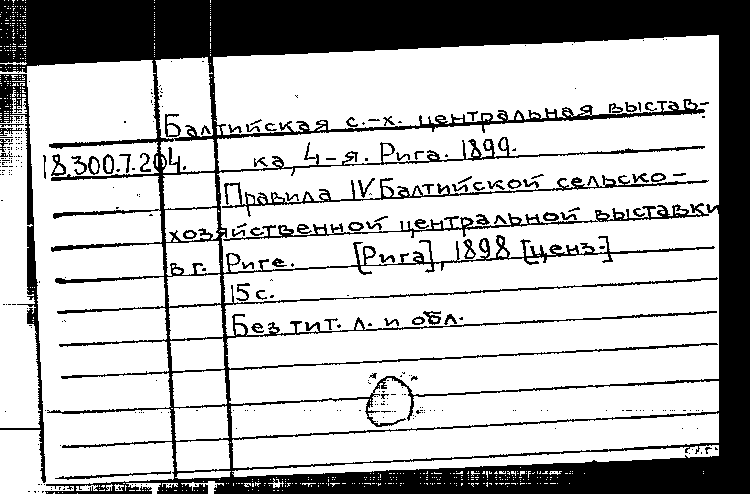 Балтийская с.-х. центральная выстав-
18.300.7.204. ка, 4-я. Рига. 1899.
Правила IV Балтийской сельско-
хозяйственной центральной выставки
в г. Риге. [Рига], 1898 [ценз.]
15 с.
Без тит. л. и обл.